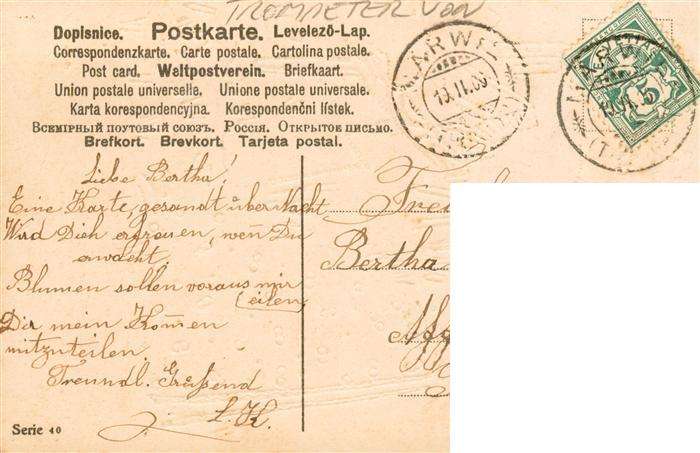 TROMPETER VON
Dopisnice. Postkarte. Levelező-Lap.
Correspondenzkarte. Carte postale. Cartolina postale.
Post card. Weltpostverein. Briefkaart.
Union postale universelle. Unione postale universale.
Karta korespondencyjna. Korespondenčni lístek.
Всемірный поутовый союзъ. Россія. Открытое письмо.
Brefkort. Brevkort. Tarjeta postal.
MÄRWIL
(THURG.)
MÄRWIL
5
Liebe Bertha!
Eine Karte, gesandt über Nacht,
Wird Dich erfreuen, wen̄ Du
erwacht.
Blumen sollen voraus mir
(eilen,
Dir mein Kom̄en
mitzuteilen.
Freundl. Grüßend
L. K.
Bertha
Aff
Serie 40